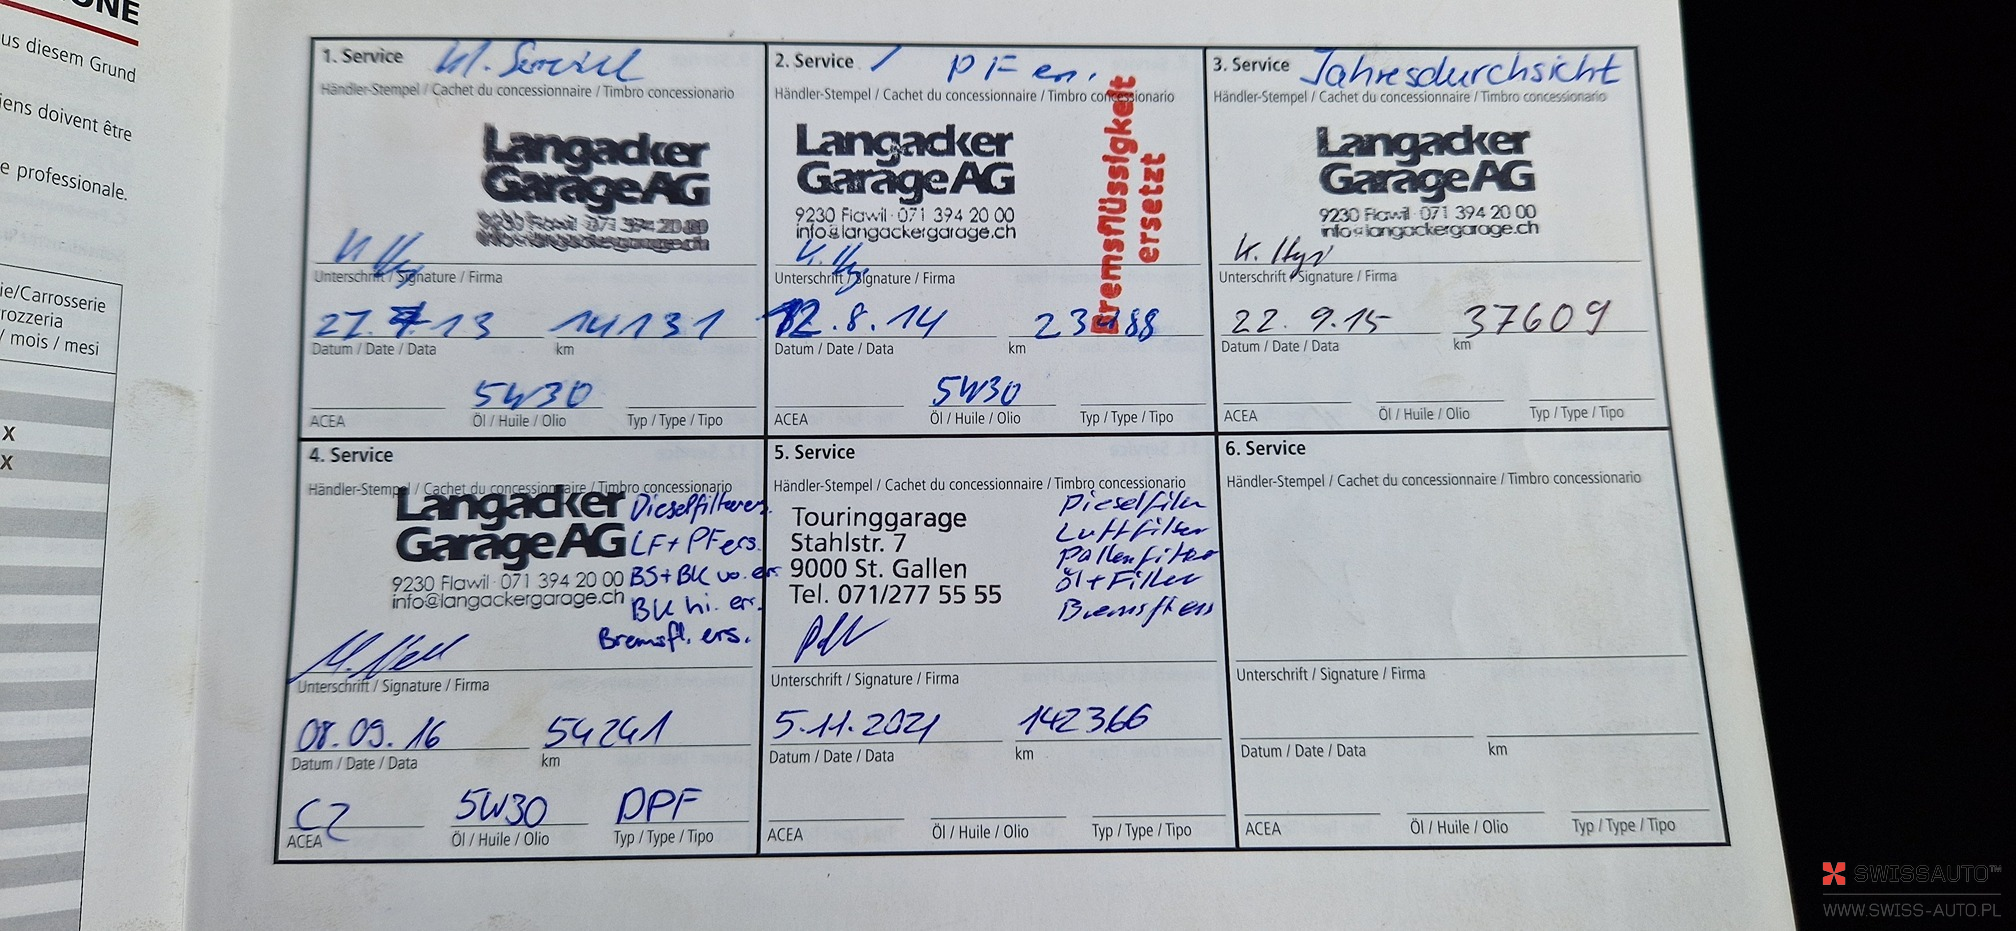 ONE
us diesem Grund
iens doivent être
e professionale.
ie/Carrosserie
rozzeria
/ mois / mesi
X
X
1. Service Kl. Service
Händler-Stempel / Cachet du concessionnaire / Timbro concessionario
Langacker
Garage AG
9230 Flawil · 071 394 20 00
info@langackergarage.ch
Unterschrift / Signature / Firma
27. 7. 13 14131
Datum / Date / Data km
5W30
ACEA Öl / Huile / Olio Typ / Type / Tipo
2. Service / PF en.
Händler-Stempel / Cachet du concessionnaire / Timbro concessionario
Langacker
Garage AG
9230 Flawil · 071 394 20 00
info@langackergarage.ch
Bremsflüssigkeit
ersetzt
Unterschrift / Signature / Firma
12.8.14 23488
Datum / Date / Data km
5W30
ACEA Öl / Huile / Olio Typ / Type / Tipo
3. Service Jahresdurchsicht
Händler-Stempel / Cachet du concessionnaire / Timbro concessionario
Langacker
Garage AG
9230 Flawil · 071 394 20 00
info@langackergarage.ch
Unterschrift / Signature / Firma
22. 9.15 37609
Datum / Date / Data km
ACEA Öl / Huile / Olio Typ / Type / Tipo
4. Service
Händler-Stempel / Cachet du concessionnaire / Timbro concessionario
Langacker
Garage AG
9230 Flawil · 071 394 20 00
info@langackergarage.ch
Dieselfilter ers.
LF + PF ers.
BS + BK vo. ers
BK hi. ers.
Bremsfl. ers.
Unterschrift / Signature / Firma
08.09.16 54241
Datum / Date / Data km
C2 5W30 DPF
ACEA Öl / Huile / Olio Typ / Type / Tipo
5. Service
Händler-Stempel / Cachet du concessionnaire / Timbro concessionario
Touringgarage
Stahlstr. 7
9000 St. Gallen
Tel. 071/277 55 55
Dieselfilter
Luftfilter
Pollenfilter
Öl + Filter
Bremsfl ers
Unterschrift / Signature / Firma
5.11.2021 142366
Datum / Date / Data km
ACEA Öl / Huile / Olio Typ / Type / Tipo
6. Service
Händler-Stempel / Cachet du concessionnaire / Timbro concessionario
Unterschrift / Signature / Firma
Datum / Date / Data km
ACEA Öl / Huile / Olio Typ / Type / Tipo
SWISSAUTO™
WWW.SWISS-AUTO.PL